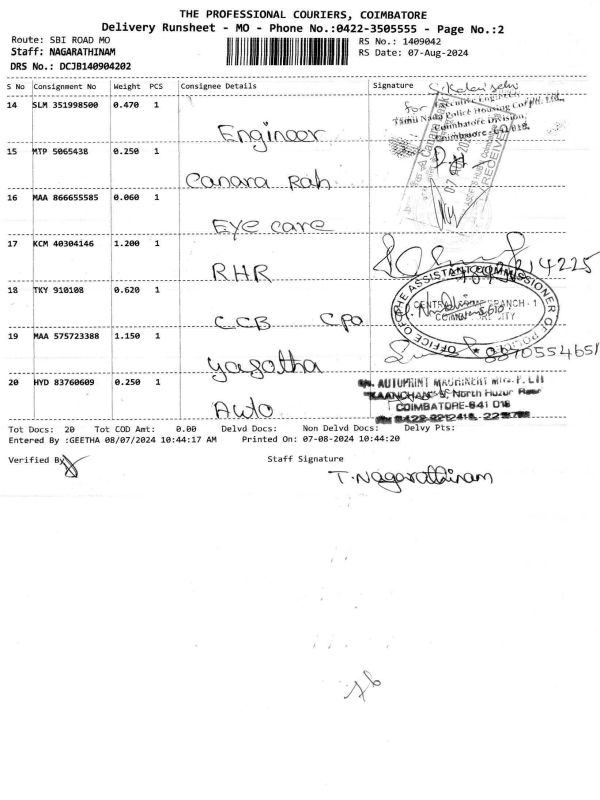 THE PROFESSIONAL COURIERS, COIMBATORE
Delivery Runsheet - MO - Phone No.:0422-3505555 - Page No.:2
Route: SBI ROAD MO
RS No.: 1409042
Staff: NAGARATHINAM
RS Date: 07-Aug-2024
DRS No.: DCJB140904202
S No Consignment No Weight PCS Consignee Details Signature
14 SLM 351998500 0.470 1
for Executive Engineer
Tamil Nadu Police Housing Corpn. Ltd.
Coimbatore Division,
Coimbatore - 641 018.
Engineer
15 MTP 5065438 0.250 1
Canara Rah
16 MAA 866655585 0.060 1
Eye care
17 KCM 40304146 1.200 1
RHR
18 TKY 910108 0.620 1
OFFICE OF THE ASSISTANT COMMISSIONER OF POLICE
CENTRAL CRIME BRANCH - 1
COIMBATORE CITY
CCB CPO
19 MAA 575723388 1.150 1
8870554651
yasotha
20 HYD 83760609 0.250 1
AUTOPRINT MACHINERY MFG. P. LTD
"KAANCHAN" 9, North Huzur Road
COIMBATORE-641 018
Auto
Tot Docs: 20 Tot COD Amt: 0.00 Delvd Docs: Non Delvd Docs: Delvy Pts:
Entered By :GEETHA 08/07/2024 10:44:17 AM Printed On: 07-08-2024 10:44:20
Verified By
Staff Signature
T. Nagarathinam